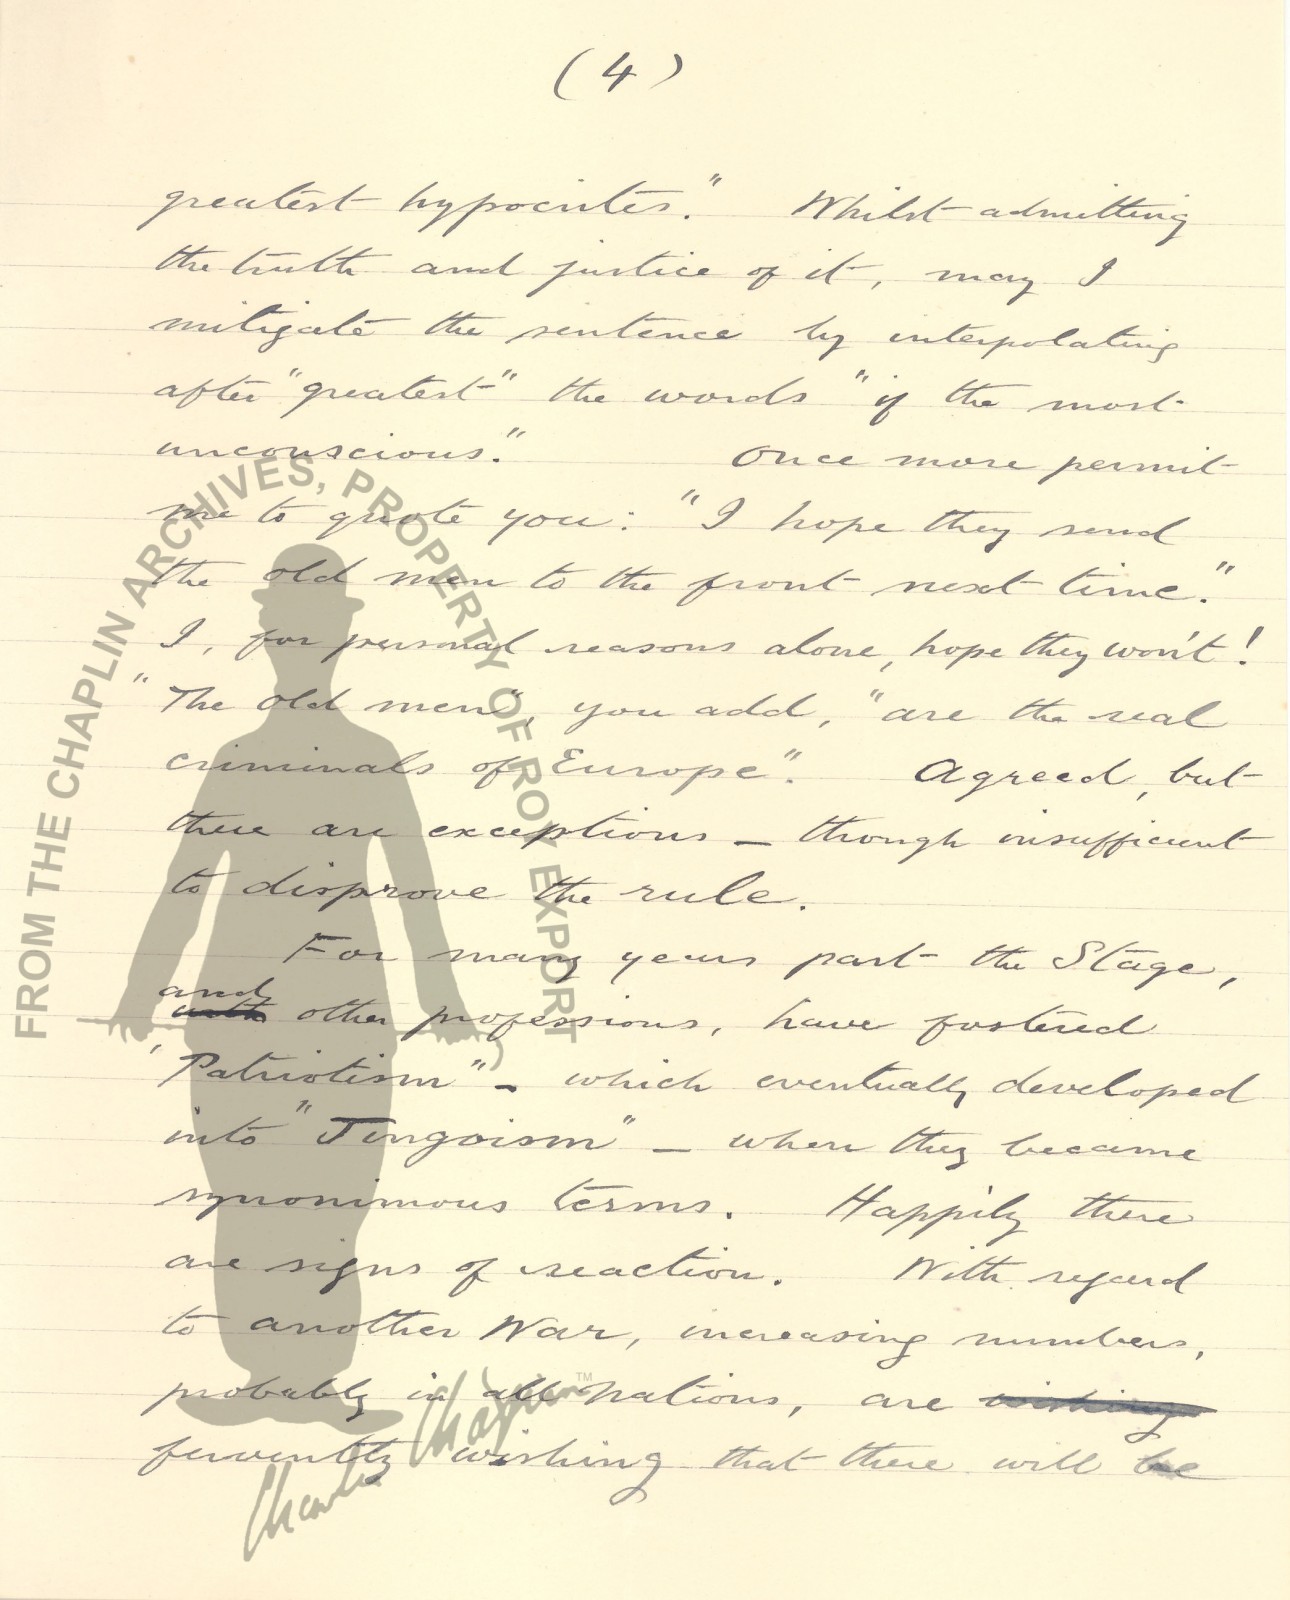 (4)
greatest hypocrites." Whilst admitting
the truth and justice of it, may I
mitigate the sentence by interpolating
after "greatest" the words "if the most
unconscious." Once more permit
me to quote you: "I hope they send
the old men to the front next time."
I, for personal reasons alone, hope they won't!
"The old men", you add, "are the real
criminals of Europe". Agreed, but
there are exceptions — though insufficient
to disprove the rule.
For many years past the Stage,
and
with other professions, have fostered
"Patriotism" — which eventually developed
into "Jingoism" — when they became
synonimous terms. Happily there
are signs of reaction. With regard
to another War, increasing numbers,
probably in all nations, are wishing
fervently wishing that there will be
FROM THE CHAPLIN ARCHIVES, PROPERTY OF ROY EXPORT
Charlie Chaplin™